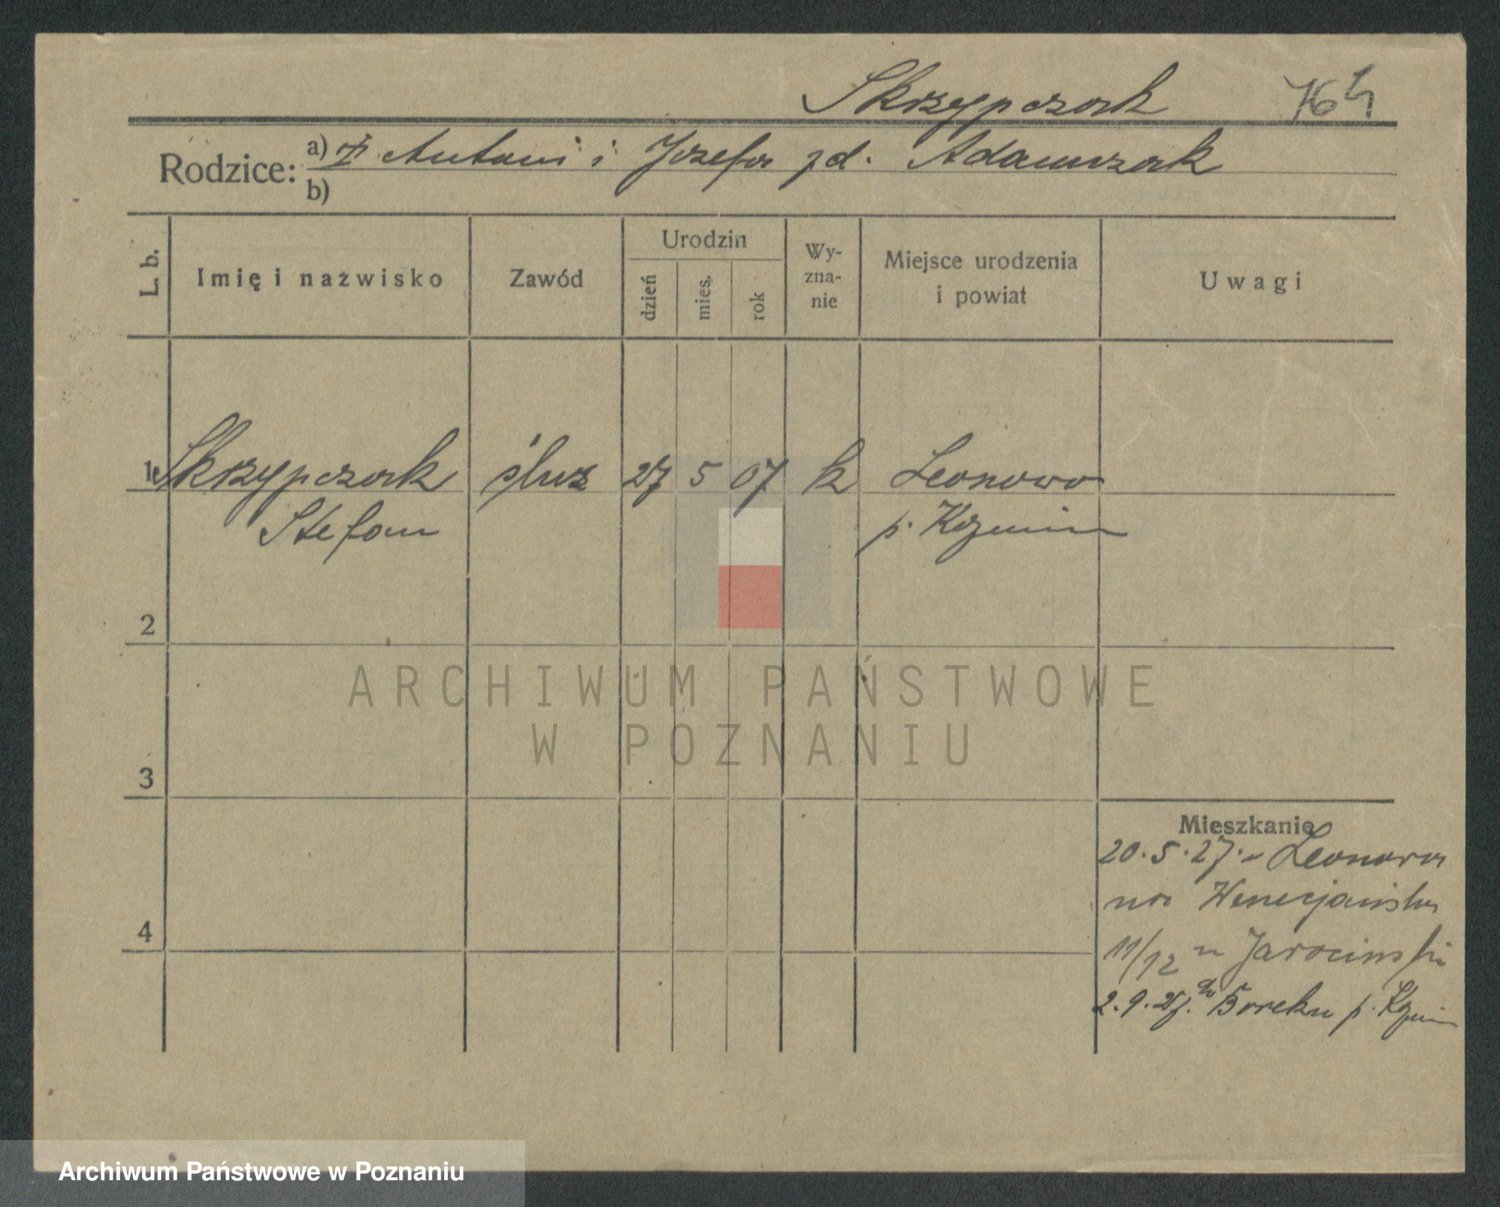 Skrzypczak 764
Rodzice: a) z Antoni i Józefa zd. Adamczak
b)
L. b. Imię i nazwisko Zawód Urodzin dzień mies. rok Wy-zna-nie Miejsce urodzenia i powiat Uwagi
1 Skrzypczak ślus 27 5 07 k Leonowo
Stefan p. Kozmin
2
3
Mieszkanie
20.5.27. z Leonowa
na Wenecjańską
4
11/12 u Jarocinski
2.9.27. do Boreku p. Kozmin
ARCHIWUM PAŃSTWOWE
W POZNANIU
Archiwum Państwowe w Poznaniu